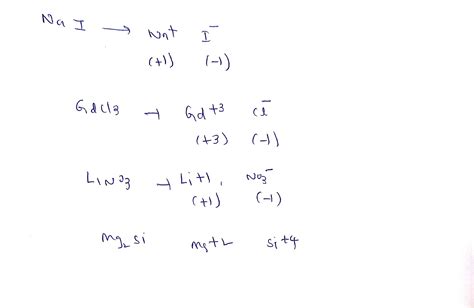 NaI → Na+ I−
(+1) (−1)
GdCl3 → Gd+3 Cl−
(+3) (−1)
LiNO3 → Li+1, NO3−
(+1) (−1)
Mg2Si Mg+2 Si+4